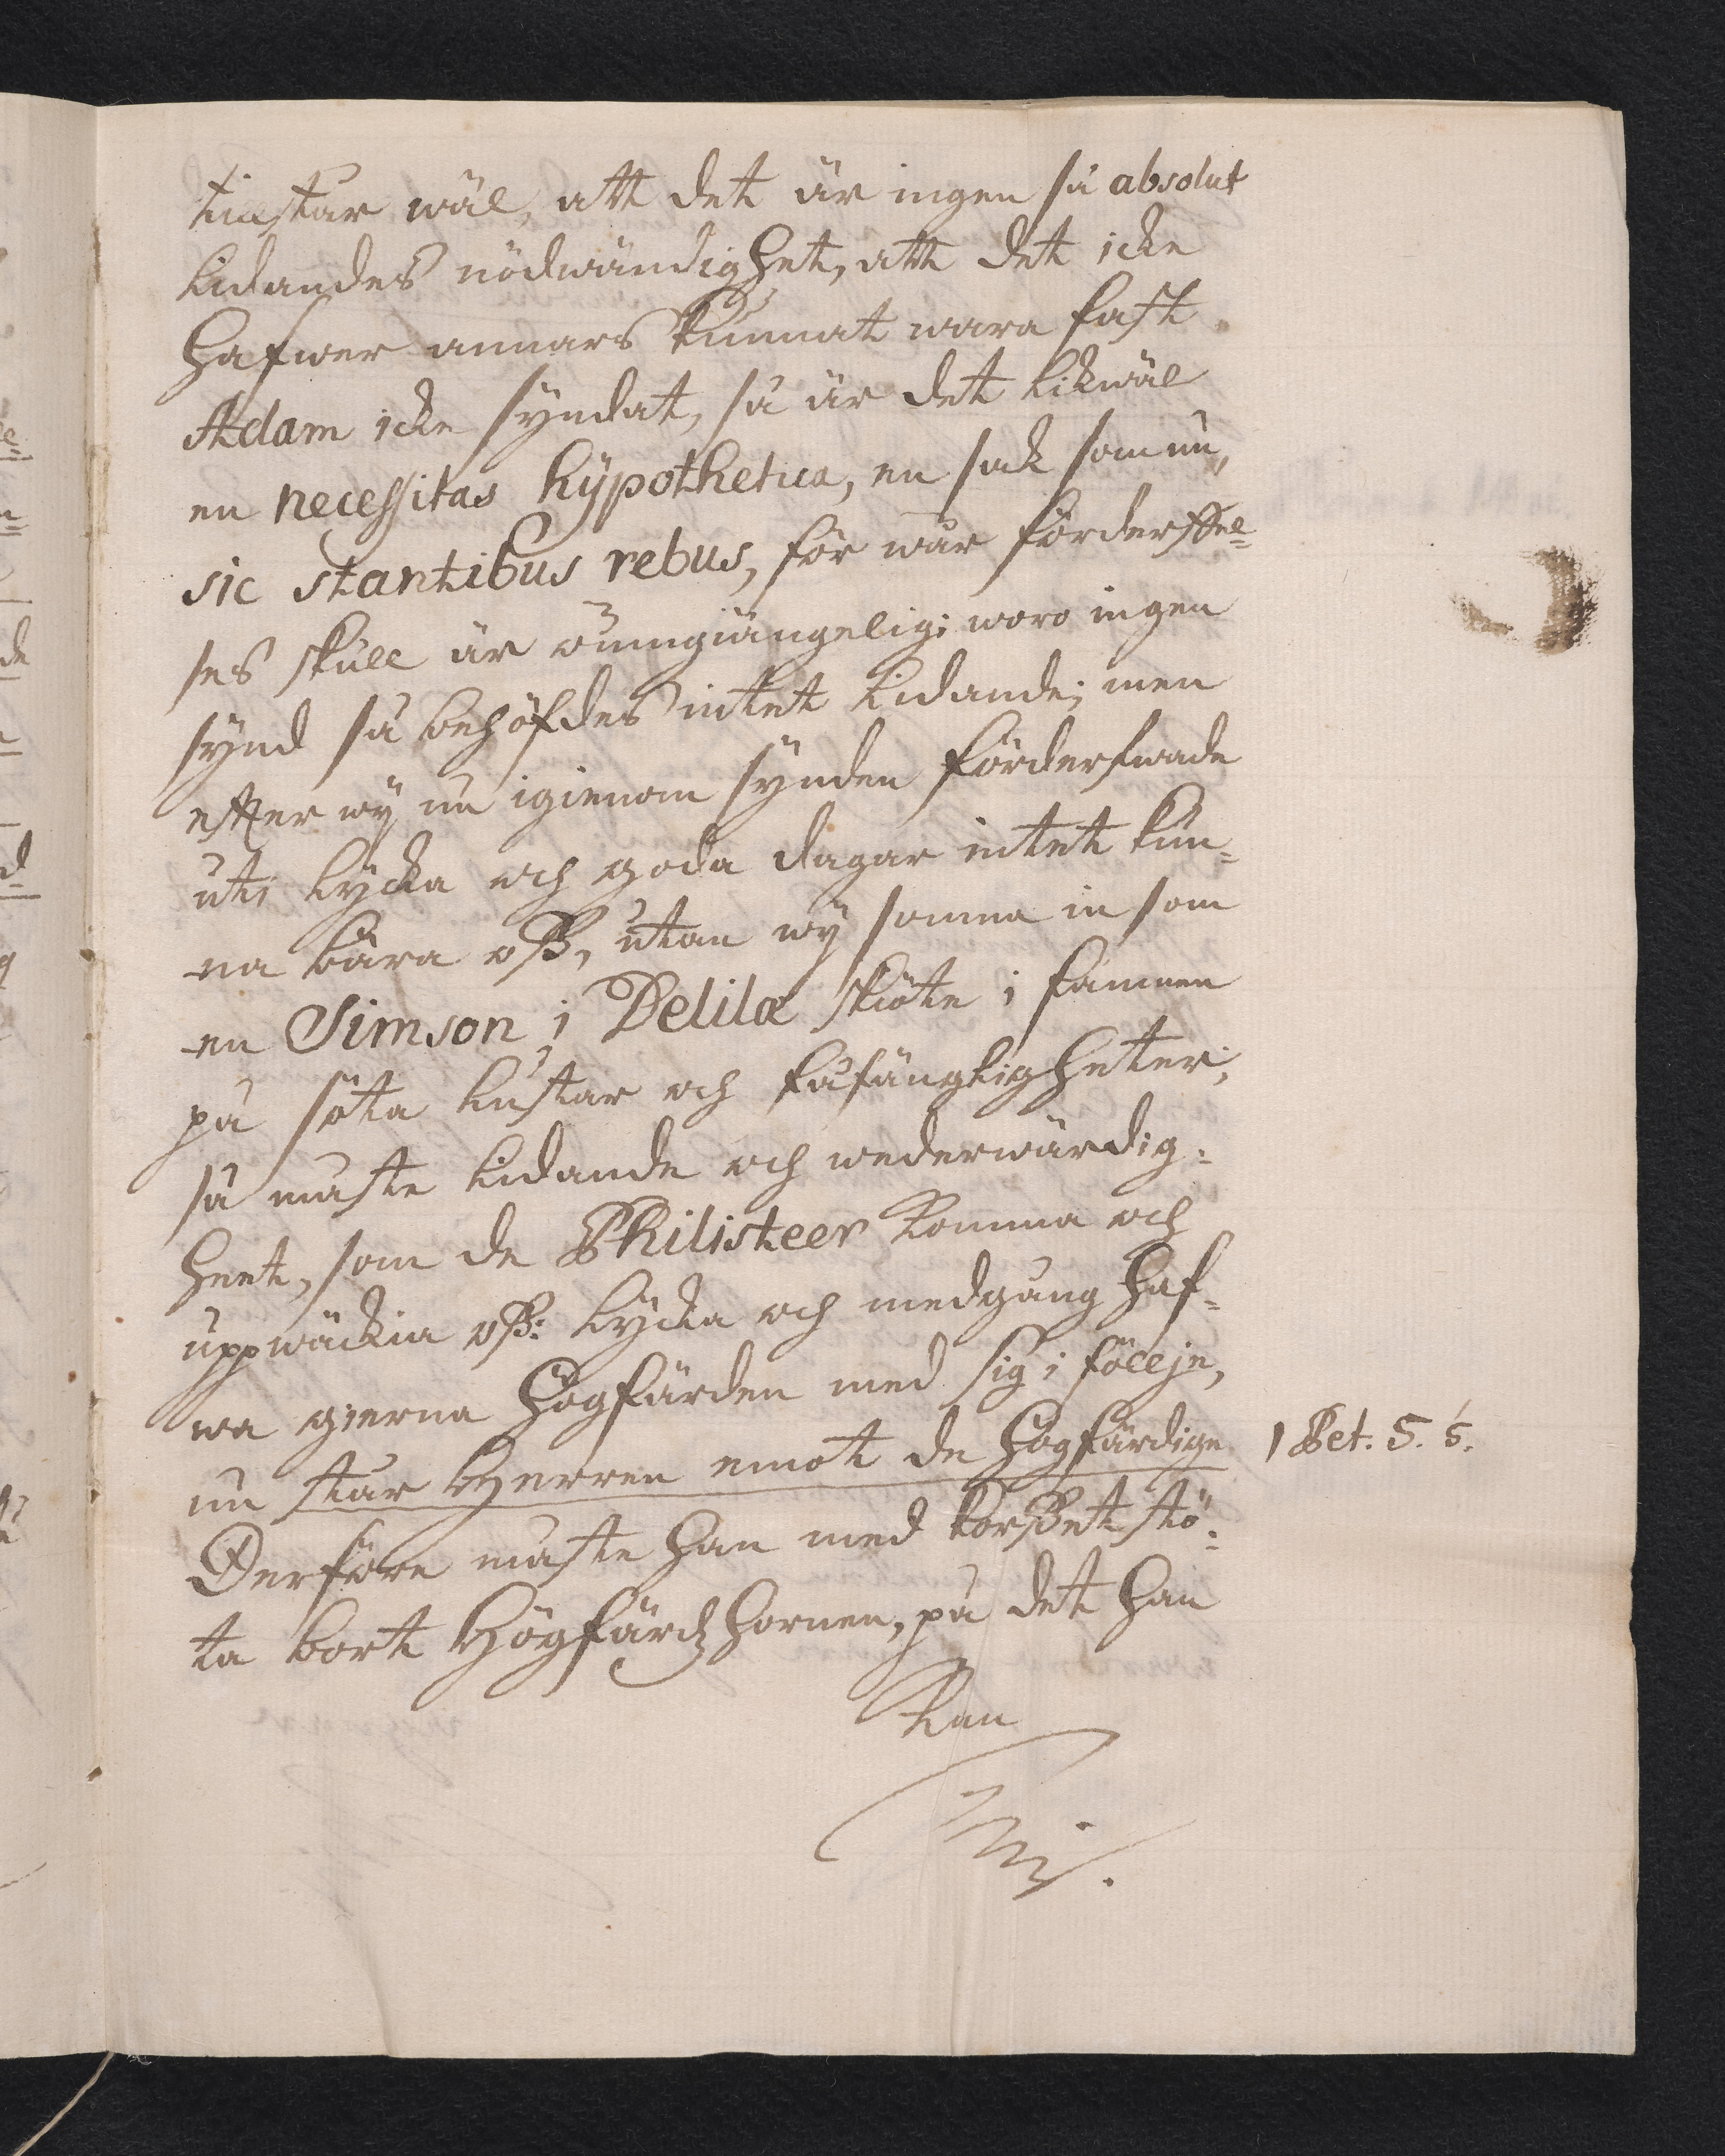 tillstår wäl, att det är ingen så absolut
Lidandes nödwändighet, att det icke
hafwer annars kunnat wara fast
Adam icke syndat, så är det likwäl
en necessitas hypothetica, en sak som nu,
sic stantibus rebus, för wår förderfwel=
ses skull är oumgiängelig; woro ingen
synd så behöfdes intet Lidande; men
efter wÿ nu igienom synden förderfwade
uti lycka och goda dagar intet kun=
na bära oß, utan wÿ somna in som
en Simson i Delilæ skiöte i famnen
på söta lustar och fåfängligheter;
så måste Lidande och wederwärdig=
heet, som de Philisteer komma och
uppwäckia oß: Lycka och medgång haf=
wa gierna högfärden med sig i föllje,
nu står Herren emot de högfärdige 1 Pet. 5. 5.
Derföre måste han med korßet stö=
ta bort högfärdz hornen, på det han
kan